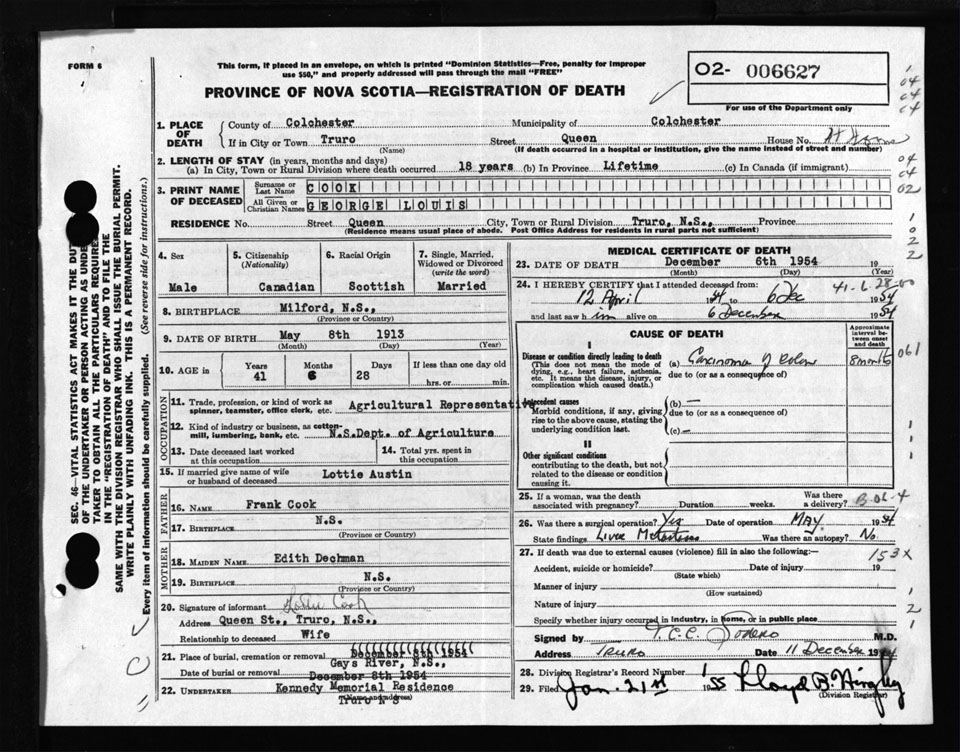 FORM 6
This form, if placed in an envelope, on which is printed "Dominion Statistics—Free, penalty for improper
use $50," and properly addressed will pass through the mail "FREE"
PROVINCE OF NOVA SCOTIA—REGISTRATION OF DEATH
O2- 006627
For use of the Department only
1. PLACE OF DEATH
County of Colchester Municipality of Colchester
If in City or Town Truro Street Queen House No.
(Name) (If death occurred in a hospital or institution, give the name instead of street and number)
2. LENGTH OF STAY (in years, months and days)
(a) In City, Town or Rural Division where death occurred 18 years (b) In Province Lifetime (c) In Canada (if immigrant)
3. PRINT NAME OF DECEASED
Surname or Last Name COOK
All Given or Christian Names GEORGE LOUIS
RESIDENCE No. Street Queen City, Town or Rural Division Truro, N.S., Province
(Residence means usual place of abode. Post Office Address for residents in rural parts not sufficient)
4. Sex
Male
5. Citizenship
(Nationality)
Canadian
6. Racial Origin
Scottish
7. Single, Married, Widowed or Divorced
(write the word)
Married
8. BIRTHPLACE Milford, N.S.,
(Province or Country)
9. DATE OF BIRTH May 8th 1913
(Month) (Day) (Year)
10. AGE in
Years Months Days If less than one day old
41 6 28 hrs. or min.
OCCUPATION
11. Trade, profession, or kind of work as
spinner, teamster, office clerk, etc. Agricultural Representative
12. Kind of industry or business, as cotton-
mill, lumbering, bank, etc. N.S.Dept. of Agriculture
13. Date deceased last worked
at this occupation
14. Total yrs. spent in
this occupation
15. If married give name of wife
or husband of deceased Lottie Austin
FATHER
16. NAME Frank Cook
17. BIRTHPLACE N.S.
(Province or Country)
MOTHER
18. MAIDEN NAME Edith Dechman
19. BIRTHPLACE N.S.
(Province or Country)
20. Signature of informant Lottie Cook
Address Queen St., Truro, N.S.,
Relationship to deceased Wife
21. Place of burial, cremation or removal December 8th 1954
Gays River, N.S.,
Date of burial or removal December 8th 1954
22. UNDERTAKER Kennedy Memorial Residence
(Name and address)
Truro N S
MEDICAL CERTIFICATE OF DEATH
23. DATE OF DEATH December 6th 1954 19
(Month) (Day) (Year)
24. I HEREBY CERTIFY that I attended deceased from:
12 April 1954 to 6 Dec 1954
and last saw h im alive on 6 December 1954
CAUSE OF DEATH
Approximate interval between onset and death
I
Disease or condition directly leading to death
(This does not mean the mode of
dying, e.g., heart failure, asthenia,
etc. It means the disease, injury, or
complication which caused death.)
(a) Carcinoma of Colon 8 months
due to (or as a consequence of)
061
Antecedent causes
Morbid conditions, if any, giving
rise to the above cause, stating the
underlying condition last.
(b) —
due to (or as a consequence of)
(c) —
II
Other significant conditions
contributing to the death, but not
related to the disease or condition
causing it.
25. If a woman, was the death
associated with pregnancy? Duration weeks. Was there
a delivery?
26. Was there a surgical operation? Yes Date of operation MAY 1954
State findings Liver Metastases Was there an autopsy? No.
27. If death was due to external causes (violence) fill in also the following:—
153X
Accident, suicide or homicide? Date of injury 19
(State which)
Manner of injury
(How sustained)
Nature of injury
Specify whether injury occurred in industry, in home, or in public place
Signed by M.D.
Address Truro Date 11 December 1954
28. Division Registrar's Record Number 1
29. Filed Jan. 21st 1955 Lloyd B. Hingley
(Division Registrar)
SEC. 46—VITAL STATISTICS ACT MAKES IT THE
OF THE UNDERTAKER OR PERSON ACTING AS
TAKER TO OBTAIN ALL THE PARTICULARS REQUIRE
IN THE "REGISTRATION OF DEATH" AND TO FILE THE
SAME WITH THE DIVISION REGISTRAR WHO SHALL ISSUE THE BURIAL PERMIT.
WRITE PLAINLY WITH UNFADING INK. THIS IS A PERMANENT RECORD.
Every item of information should be carefully supplied. (See reverse side for instructions.)